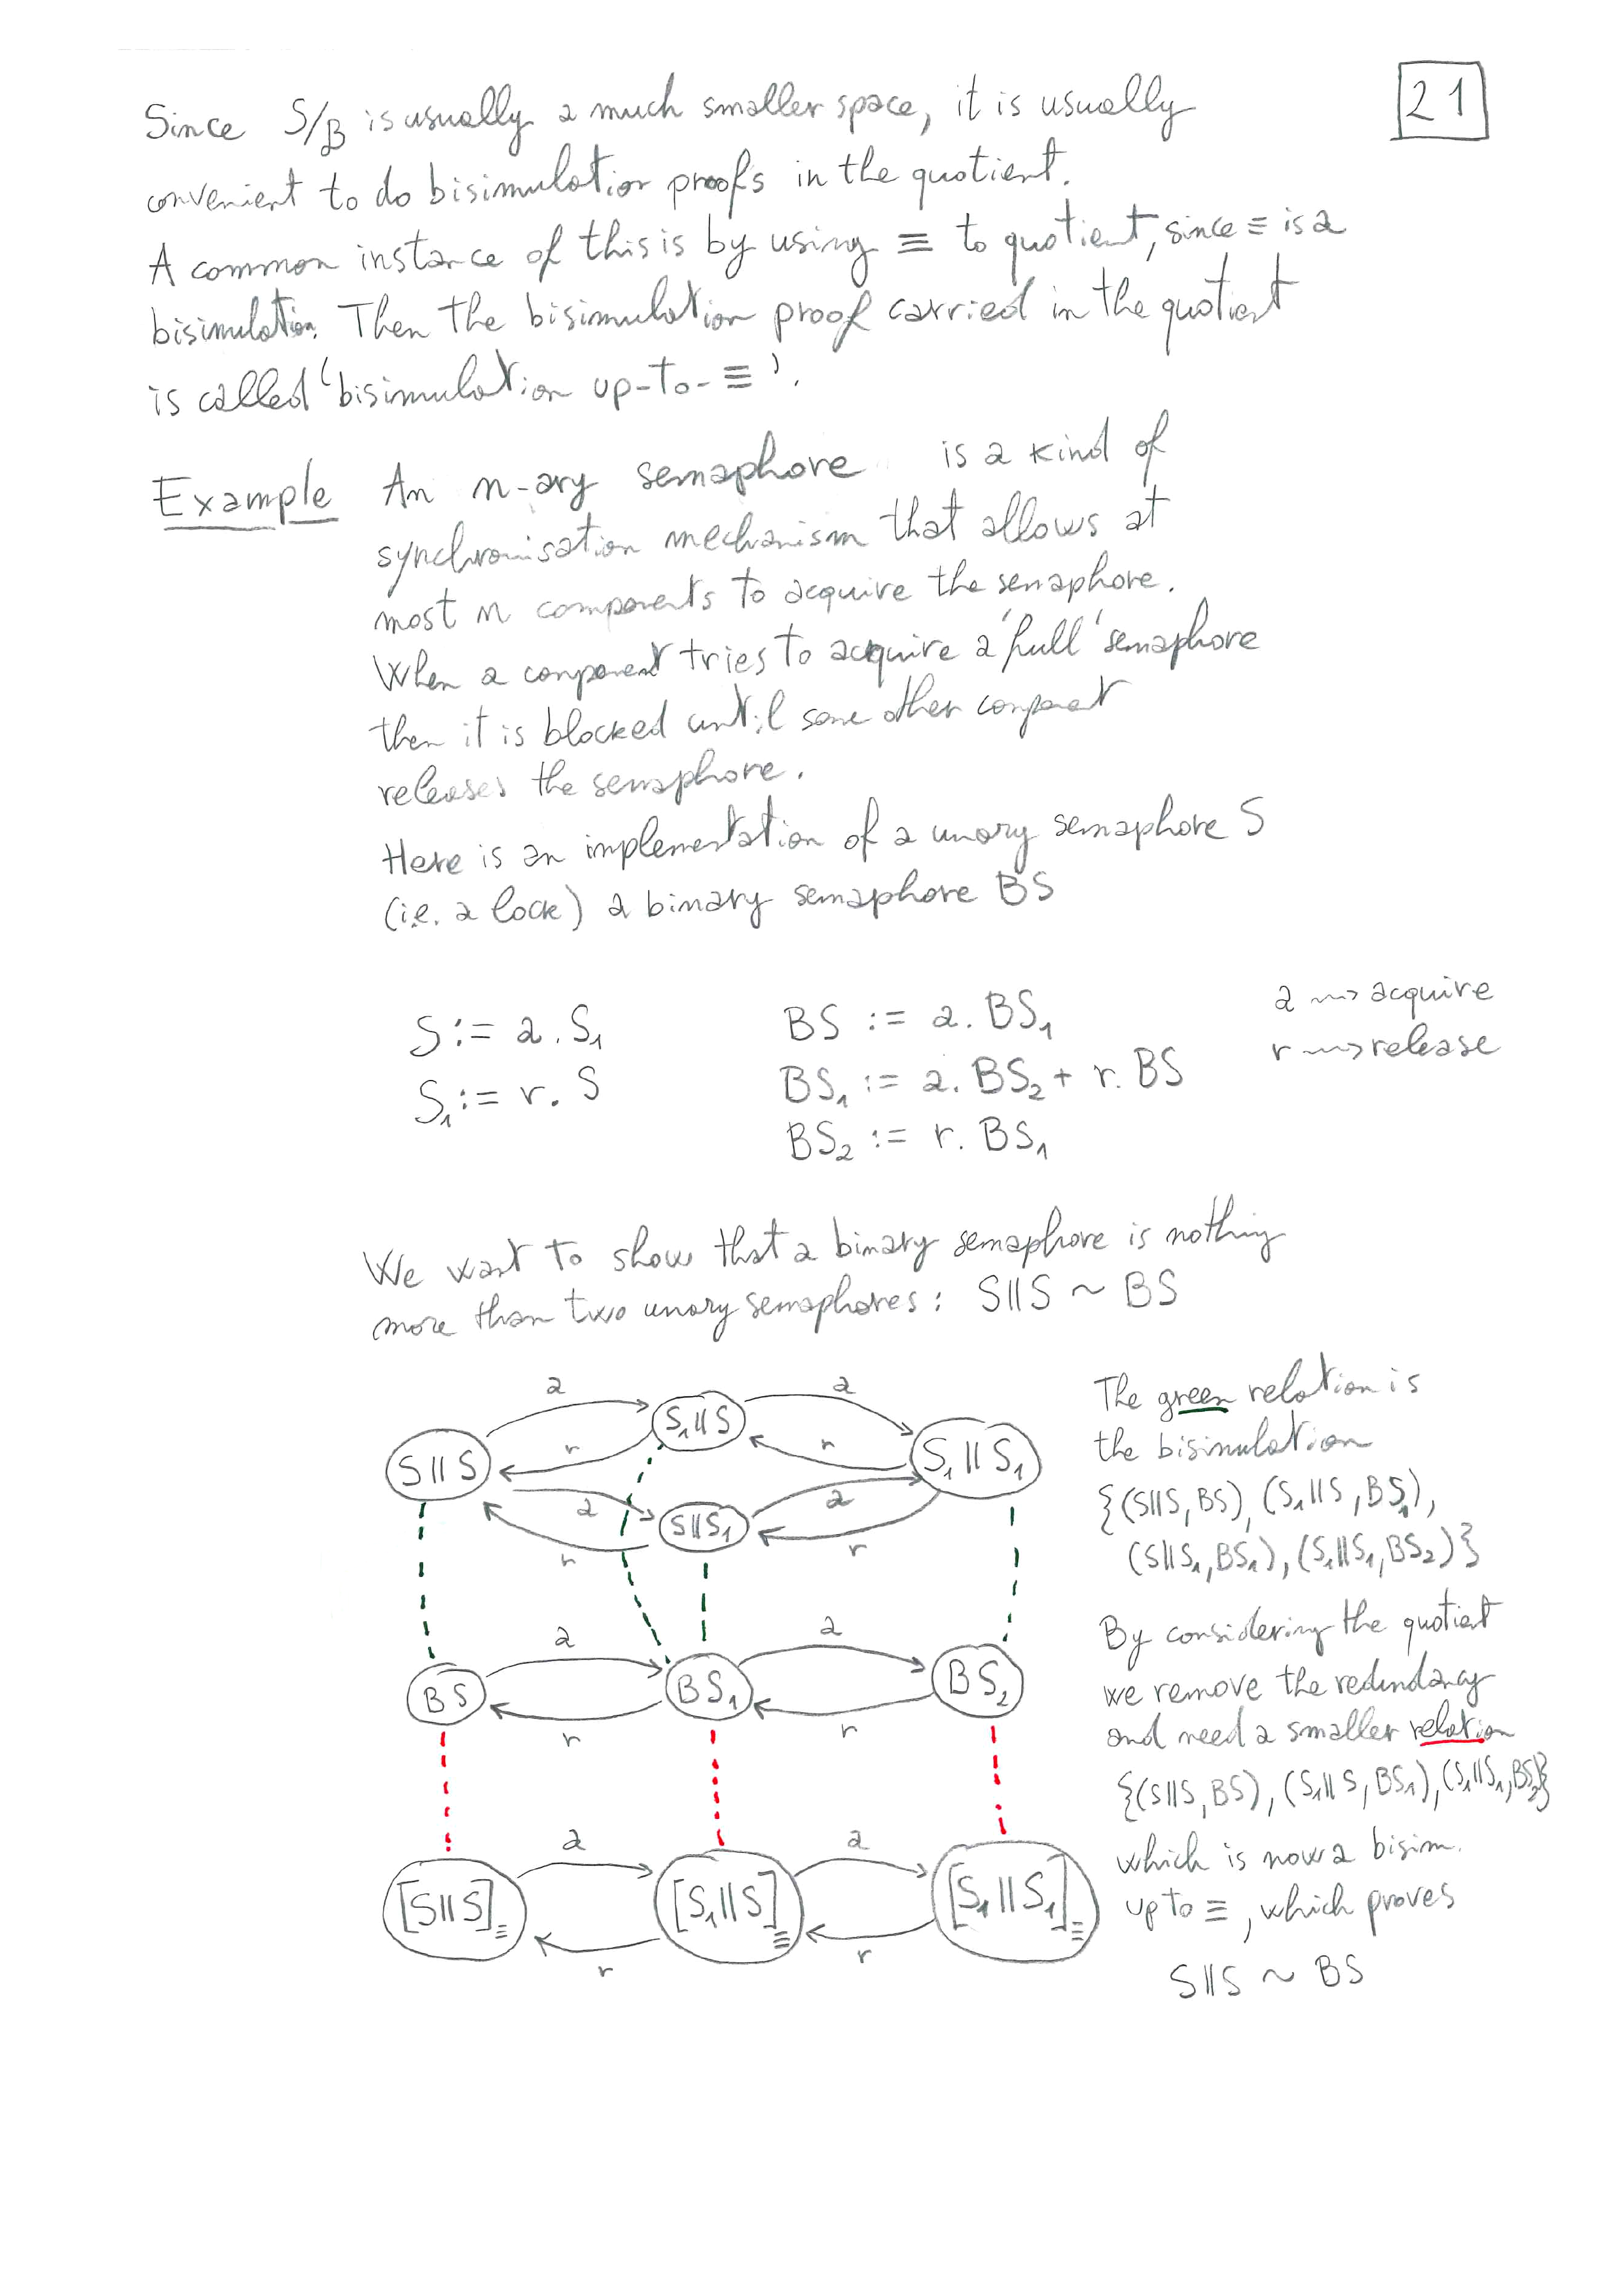 21
Since S/B is usually a much smaller space, it is usually
convenient to do bisimulation proofs in the quotient.
A common instance of this is by using ≡ to quotient, since ≡ is a
bisimulation. Then the bisimulation proof carried in the quotient
is called 'bisimulation up-to-≡'.
Example An n-ary semaphore is a kind of
synchronisation mechanism that allows at
most n components to acquire the semaphore.
When a component tries to acquire a 'full' semaphore
then it is blocked until some other component
releases the semaphore.
Here is an implementation of a unary semaphore S
(i.e. a lock) a binary semaphore BS
S := a. S₁ BS := a. BS₁ a ⇝ acquire
S₁ := r. S BS₁ := a. BS₂ + r. BS r ⇝ release
BS₂ := r. BS₁
We want to show that a binary semaphore is nothing
more than two unary semaphores: S||S ~ BS
a a
S||S S₁||S S₁||S₁
r r
a a
S||S₁
r r
a a
BS BS₁ BS₂
r r
a a
[S||S]≡ [S₁||S]≡ [S₁||S₁]≡
r r
The green relation is
the bisimulation
{(S||S, BS), (S₁||S, BS₁),
(S||S₁, BS₁), (S₁||S₁, BS₂)}
By considering the quotient
we remove the redundancy
and need a smaller relation
{(S||S, BS), (S₁||S, BS₁), (S₁||S₁, BS₂)}
which is now a bisim.
up to ≡, which proves
S||S ~ BS